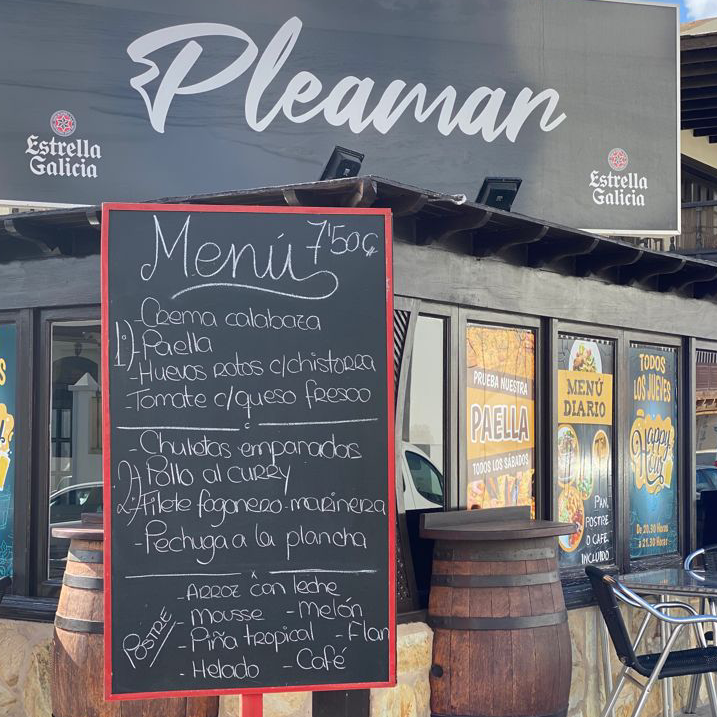 Pleamar
Estrella
Galicia
Estrella
Galicia
Menú 7'50€
1)
-Crema calabaza
-Paella
-Huevos rotos c/chistorra
-Tomate c/queso fresco
2)
-Chuletas empanadas
-Pollo al curry
-Filete fogonero-marinera
-Pechuga a la plancha
POSTRE
-Arroz con leche
-Mousse -Melón
-Piña tropical -Flan
-Helado -Café
PRUEBA NUESTRA
PAELLA
TODOS LOS SÁBADOS
MENÚ
DIARIO
PAN,
POSTRE
O CAFÉ
INCLUIDO
TODOS
LOS JUEVES
Happy
Hour
De 20.30 Horas
a 21.30 Horas